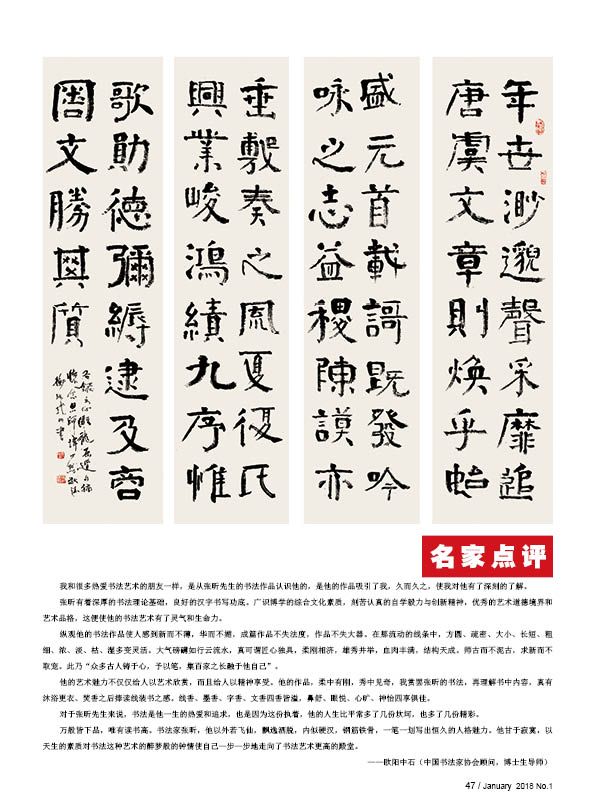 年世渺邈聲采靡追
唐虞文章則煥乎始
盛元首載謌既發吟
咏之志益稷陳謨亦
垂敷奏之風夏後氏
興業峻鴻績九序惟
歌勛德彌縟逮及商
周文勝其質
名家点评
我和很多热爱书法艺术的朋友一样，是从张昕先生的书法作品认识他的，是他的作品吸引了我，久而久之，使我对他有了深刻的了解。
张昕有着深厚的书法理论基础，良好的汉字书写功底。广识博学的综合文化素质，刻苦认真的自学毅力与创新精神，优秀的艺术道德境界和
艺术品格，这便使他的书法艺术有了灵气和生命力。
纵观他的书法作品使人感到新而不薄，华而不媚，成篇作品不失法度，作品不失大器。在那流动的线条中，方圆、疏密、大小、长短、粗
细、浓、淡、枯、湿多变灵活。大气磅礴如行云流水，真可谓匠心独具，柔刚相济，雄秀并举，血肉丰满，结构天成。师古而不泥古，求新而不
取宠。此乃“众多古人铸于心，予以笔，集百家之长融于他自己”。
他的艺术魅力不仅仅给人以艺术欣赏，而且给人以精神享受。他的作品，柔中有刚，秀中见奇，我赏罢张昕的书法，再理解书中内容，真有
沐浴更衣、焚香之后捧读线装书之感。线香、墨香、字香、文香四香皆溢，鼻舒、眼悦、心旷、神怡四享俱佳。
对于张昕先生来说，书法是他一生的热爱和追求，也是因为这份执着，他的人生比平常多了几份坎坷，也多了几份精彩。
万般皆下品，唯有读书高。书法家张昕，他以外若飞仙，飘逸洒脱，内似硬汉，钢筋铁骨，一笔一划写出恒久的人格魅力。他甘于寂寞，以
天生的素质对书法这种艺术的醉萝般的钟情使自己一步一步地走向了书法艺术更高的殿堂。
——欧阳中石（中国书法家协会顾问，博士生导师）
47 / January 2018 No.1